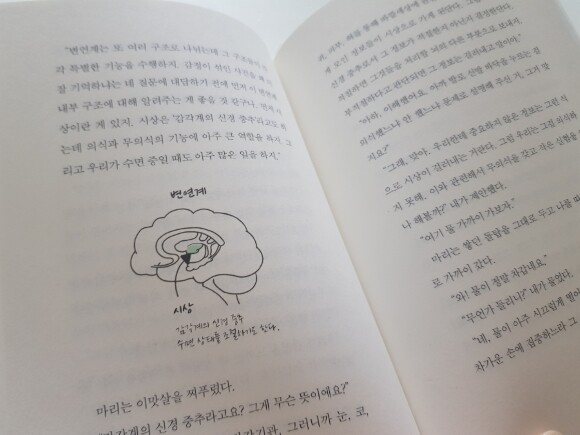 "변연계는 또 여러 구조로 나뉘는데 그 구조들이
각 특별한 기능을 수행하지. 감정이 섞인 사건을 왜
잘 기억하냐는 네 질문에 대답하기 전에 먼저 이
내부 구조에 대해 알려주는 게 좋을 것 같구나. 먼저 시
상이란 게 있지. 시상은 '감각계의 신경 중추'라고도 하
는데 의식과 무의식의 기능에 아주 큰 역할을 하지. 그
리고 우리가 수면 중일 때도 아주 많은 일을 하지."
변연계
시상
감각계의 신경 중추
수면 상태를 조절하기도 한다.
마리는 이맛살을 찌푸렸다.
"감각계의 신경 중추라고요? 그게 무슨 뜻이에요?"
감각기관, 그러니까 눈, 코,
귀, 피부, 혀를 통해
게 모인 정보들이 시상으로 가게 된단다.
신경 중추로서 그 정보가 적절한지 아닌지 결정한단다.
적절하면, 그것들을 처리할 뇌의 다른 부분으로 보내지
부적절하다고 판단되면 그 정보는 걸러내고 말이야."
"아하, 이해했어요. 아까 했던 신발
의식했느냐 안 했느냐 문제로 설명해 주신 거, 그거 맞
지요?"
"그래, 맞아. 우리한테 중요하지 않은 정보는 그런 식
으로 시상이 걸러내는 거란다. 그럼 우리는 그걸 의식하
지 못해. 이와 관련해서 무의식을 갖고 작은 실험을
나 해볼까?" 내가 제안했다.
"여기 물 가까이 가보자."
마리는 쌓던 돌탑을 그대로 두고 나를 따
로 가까이 갔다.
"와! 물이 정말 차갑네요."
"무언가 들리니?" 내가 물었다.
"네, 물이 아주 시끄럽게
차가운 손에 집중하느라 그